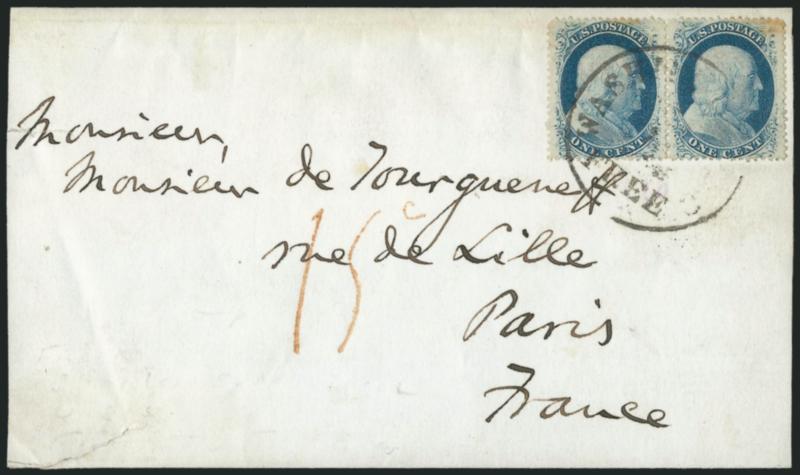 U.S. POSTAGE U.S. POSTAGE
ONE CENT ONE CENT
Monsieur,
Monsieur de Tourgueneff
rue de Lille
Paris
France
15c